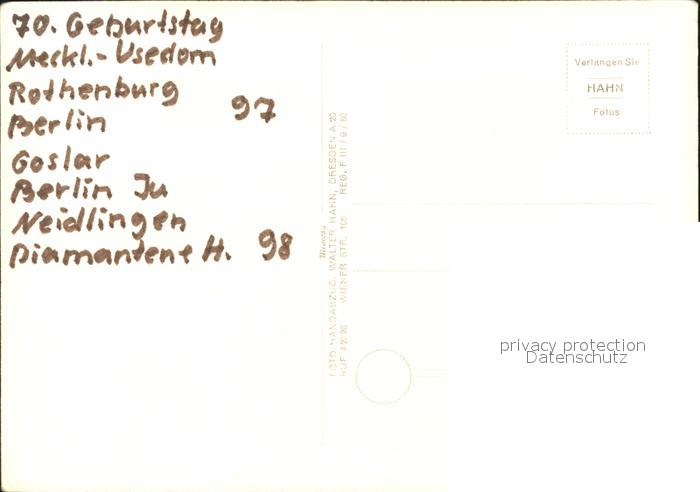 70. Geburtstag
Meckl.-Usedom
Rothenburg
Berlin 97
Goslar
Berlin Ju
Neidlingen
Diamantene H. 98
FOTO HANDABZUG, WALTER HAHN, DRESDEN A 20
RUF 42020 WIENER STR. 105 REG. F III / 9 / 60
Verlangen Sie
HAHN
Fotos
privacy protection
Datenschutz